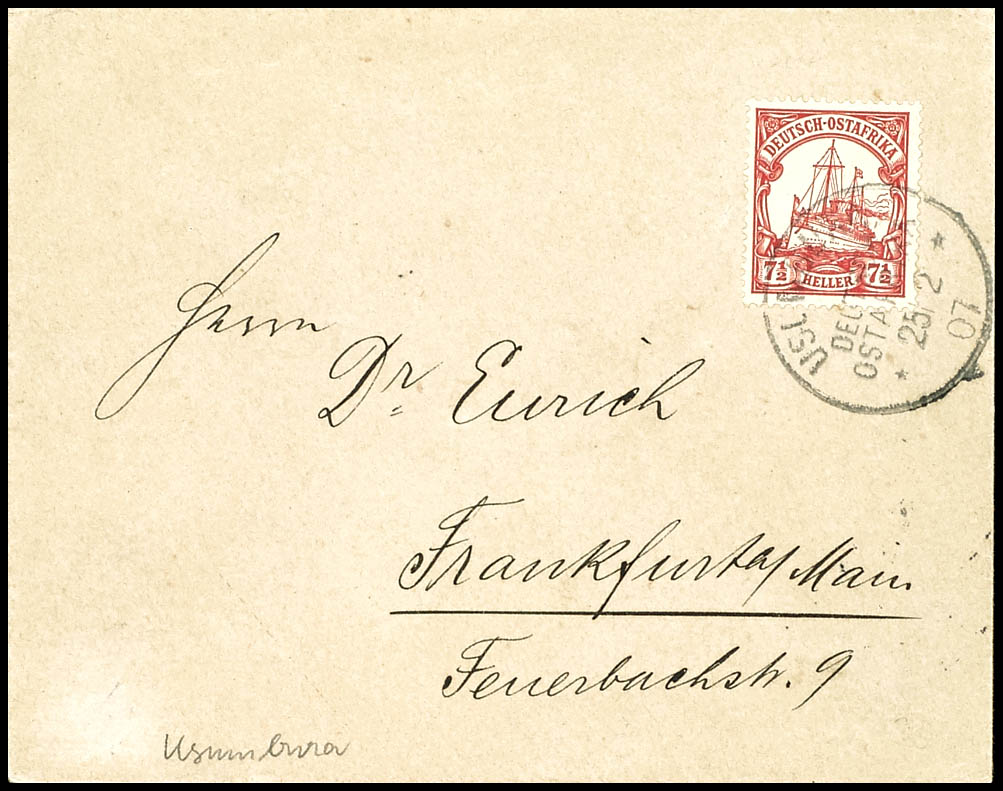 DEUTSCH-OSTAFRIKA
7½ HELLER 7½
25/2
07
Herrn
Dr. Eurich
Frankfurt a/Main
Feuerbachstr. 9
Usumbura